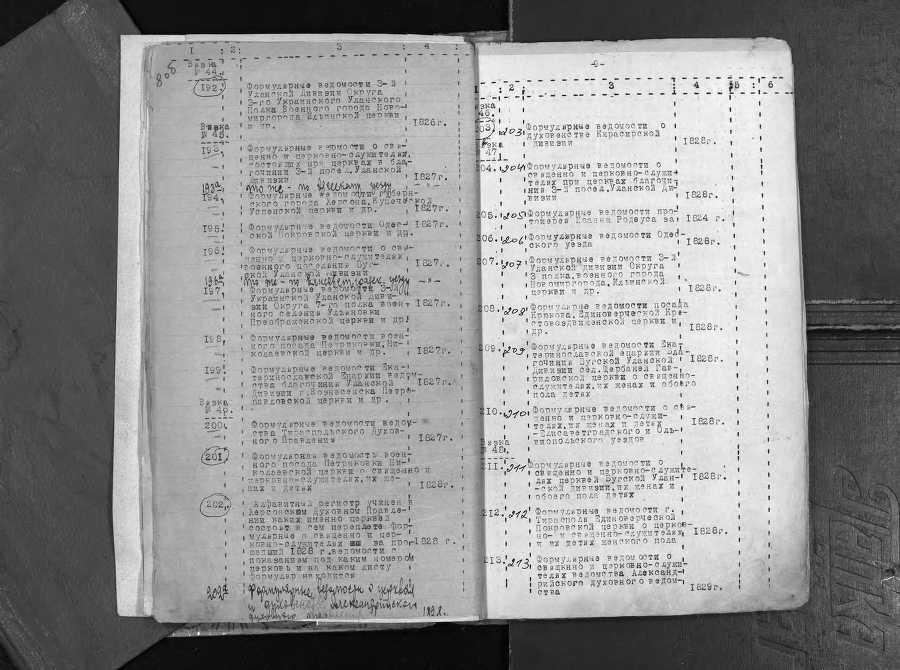 808
1 2: 3 4
Вязка
№ 44.
192. Формулярные ведомости 3-й
Уланской Дивизии Округа
3-го Украинского Уланского
Полка Военного города Ново-
миргорода Ильинской церкви
и др. 1826г.
Вязка
№ 45.
193. Формулярные ведомости о свя-
щенно и церковно-служителях,
состоящих при церквах в бла-
гочинии 3-й посел.Уланской
Дивизии 1827г.
193а то же - по уезду -"-
194. Формулярные ведомости губерн-
ского города Херсона,Купеческой
Успенской церкви и др. 1827г.
195. Формулярные ведомости Одес-
ской Покровской церкви и др. 1827г.
196. Формулярные ведомости о свя-
щенно и церковно-служителях
военного поселения Буг-
ской Уланской дивизии 1827.
196а то же - по Елисаветград. уезду -"-
197. Формулярные ведомости 3-й
Украинской Уланской диви-
зии Округа 7-го полка воен-
ного селения Ульяновки
Преображенской церкви и др. 1827г.
198. Формулярные ведомости воен-
ного посада Петриковки,Ни-
колаевской церкви и др. 1827г.
199. Формулярные ведомости Ека-
теринославской Епархии ведом-
ства благочиния Уланской
Дивизии г.Вознесенска Петро-
павловской церкви и др. 1827г.
Вязка
№ 46.
200. Формулярные ведомости ведом-
ства Тираспольского Духов-
ного Правления 1827г.
201. Формулярная ведомость воен-
ного посада Петриковки Ни-
колаевской церкви о священно и
церковно-служителях,их же-
нах и детях 1828г.
202. Алфавитный регистр учинен в
Херсонском Духовном Правле-
нии каких именно церквей
состоят в сем переплете фор-
мулярные о священно и цер-
ковно-служителях за про-
шедший 1828 г.ведомости с
показанием под каким номером
церковь и на каком листу
формуляр находится 1828 г.
202а Формулярные ведомости о церквах
и духовенстве Александрийского
духовного 1828.
-9-
1 2 3 4 5 6
Вязка
46.
203. 203. Формулярные ведомости о
духовенстве Кирасирской
дивизии 1828г.
Вязка
47.
204. 204 Формулярные ведомости о
священно и церковно-служи-
телях при церквах благочи-
ния 3-й посел.Уланской Ди-
визии 1828г.
205. 205 Формулярные ведомости про-
тоиерея Иоанна Родоуса за 1824 г.
206. 206 Формулярные ведомости Одес-
ского уезда 1828г.
207. 207 Формулярные ведомости 3-й
Уланской дивизии Округа
3 полка,военного города
Новомиргорода,Ильинской
церкви и др. 1828г.
208. 208 Формулярные ведомости посада
Крюкова,Единоверческой Кре-
стовоздвиженской церкви и
др. 1828г.
209. 209 Формулярные ведомости Ека-
теринославской епархии Бла-
гочиния Бугской Уланской
Дивизии сел.Щербаней Гав-
риловской церкви о священно-
служителях,их женах и обоего
пола детях 1828г.
210. 210 Формулярные ведомости о свя-
щенно и церковно-служи-
телях,их женах и детях
-Елисаветградского и Оль-
виопольского уездов 1828г.
Вязка
№ 48.
211. 211 Формулярные ведомости о
священно и церковно-служите-
лях церквей Бугской Улан-
-ской дивизии,их женах и
обоего пола детях 1828г.
212. 212 Формулярные ведомости г.
Тирасполя Единоверческой
Покровской церкви о церков-
но- и священно-служителях
и их детях женского пола 1828г.
213. 213. Формулярные ведомости о
священно и церковно-служи-
телях ведомства Александ-
рийского духовного ведом-
ства 1829г.